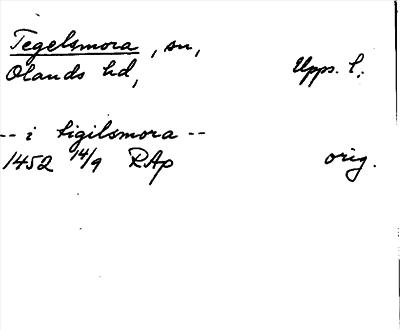 Tegelsmora, sn,
Olands hd, Upps. l.
-- i tigilsmora --
1452 14/9 RAp orig.